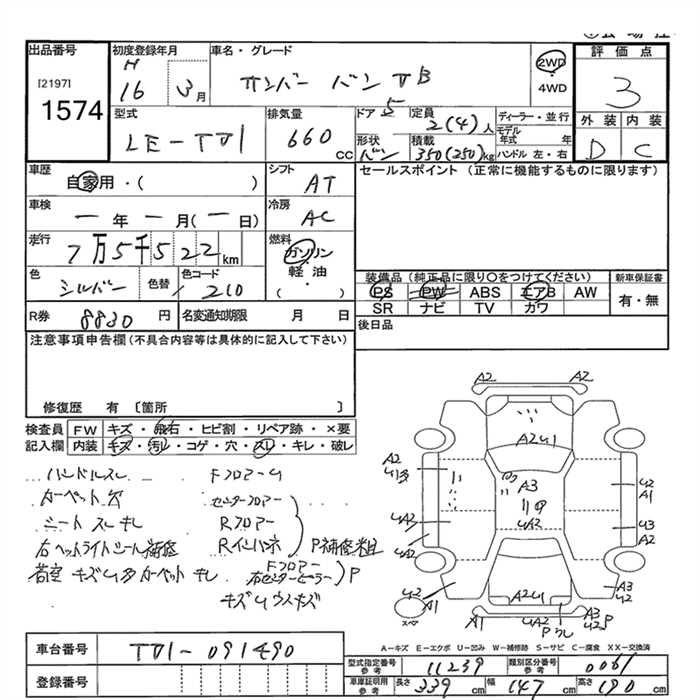 出品番号
[2197]
1574
初度登録年月
H
16 3月
車名・グレード
サンバー バン TB
2WD
4WD
評価点
3
型式
LE-TV1
排気量
660
CC
ドア 5
定員
2(4)人
形状
バン
積載
350(250)kg
ディーラー・並行
モデル
年式 年
ハンドル 左・右
外装 内装
D C
車歴
自家用・( )
シフト
AT
セールスポイント(正常に機能するものに限ります)
車検
ー年ー月(ー日)
冷房
AC
走行
7万5千522km
燃料
ガソリン
軽油
( )
色
シルバー
色替 /
色コード
210
装備品(純正品に限り○をつけてください)
新車保証書
PS PW ABS エアB AW
SR ナビ TV カワ
有・無
R券 8830円
名変通知期限 月 日
後日品
注意事項申告欄(不具合内容等は具体的に記入して下さい)
修復歴 有 〔箇所 〕
検査員 FW キズ・飛石・ヒビ割・リペア跡・×要
記入欄 内装 キズ・汚レ・コゲ・穴・スレ・キレ・破レ
ハンドルスレ
カーペット穴
シートスレキレ
右ヘッドライトシール補修
荷室キズU多カーペットキレ
FフロアーU
センターフロアー
Rフロアー
Rインパネ
P補修粗
Fフロアー
右センターピーラー P
キズUウスキズ
A2 A2
A2U1
A2
A3
U2
A1
UA2
UA2
U3
A2
UA2
A2U1
U2
A1
A3
U2
A2U1
A3
U2P
スペア
A-キズ E-エクボ U-凹み W-補修跡 S-サビ C-腐食 XX-交換済
車台番号
TV1-091490
登録番号
型式指定番号
参考
11239
類別区分番号
参考
0061
車庫証明用
参考
長さ 339cm 幅 147cm 高さ 190cm